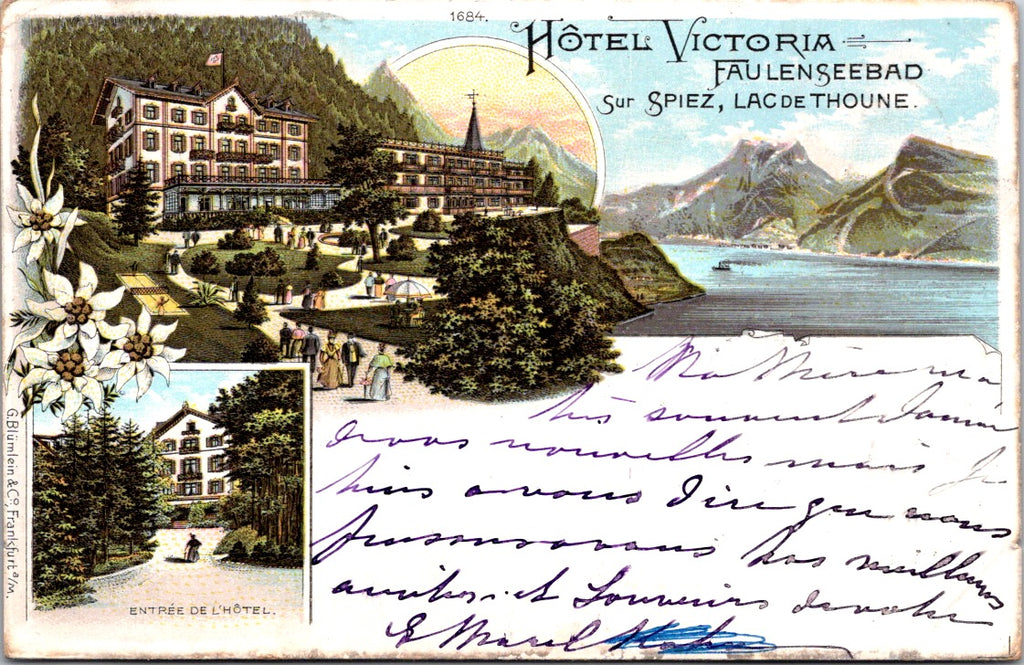 1684.
HÔTEL VICTORIA
FAULENSEEBAD
Sur SPIEZ, LAC DE THOUNE.
Ma Mère m'a
très souvent
de vos nouvelles mais Je
tiens a vous dire que nous
pensons a vous nos meilleurs
amitiés et Souvenirs de votre
Marcel
ENTRÉE DE L'HÔTEL.
G. Blümlein & Co., Frankfurt a/M.